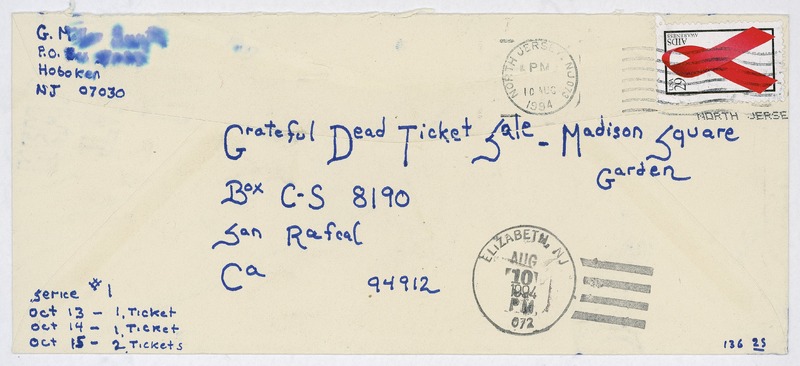 G. M
P.O.
Hoboken
NJ 07030
NORTH JERSEY, NJ 073
PM
10 AUG
1994
AIDS
AWARENESS
USA
29
NORTH JERSE
Grateful Dead Ticket Sale - Madison Square
Garden
Box C-S 8190
San Rafeal
Ca 94912
ELIZABETH, NJ
AUG
10
1994
PM
072
Serice #1
Oct 13 - 1, Ticket
Oct 14 - 1, Ticket
Oct 15 - 2, Tickets
136 25